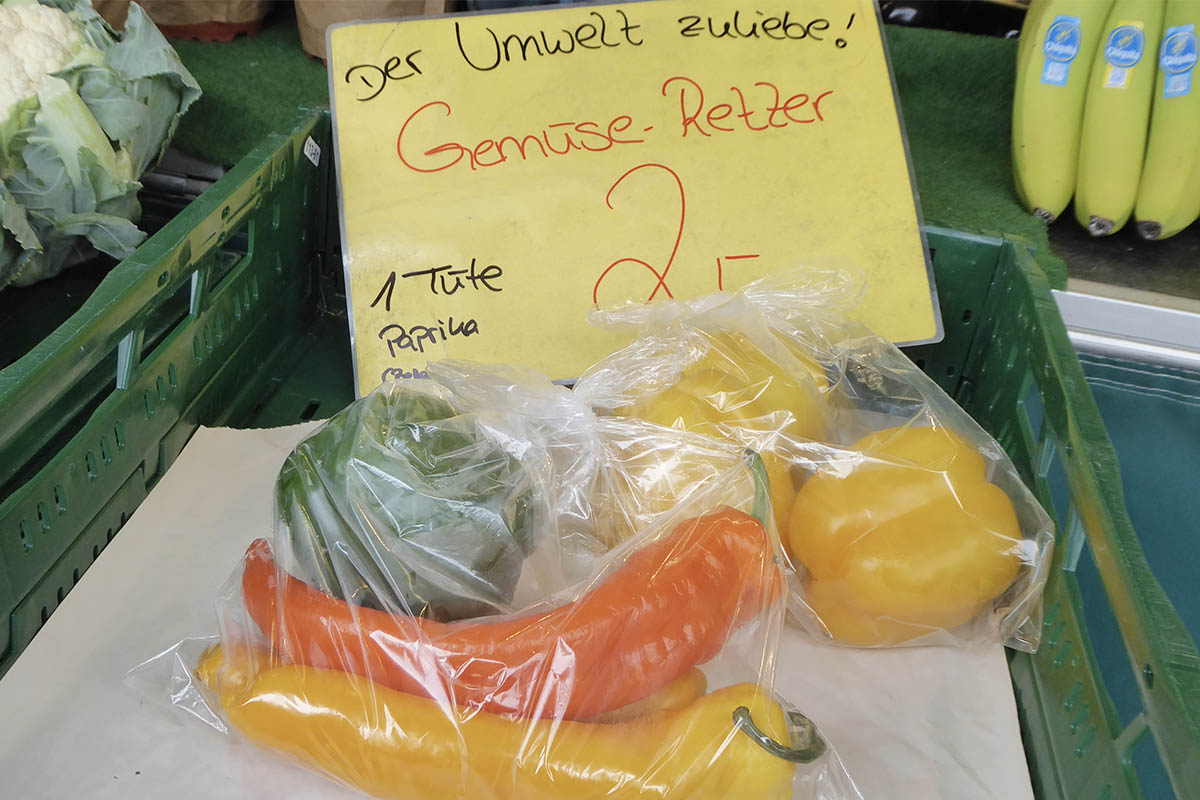 Der Umwelt zuliebe!
Gemüse-Retter
2,-
1 Tüte
Paprika
Chiquita
Chiquita
Chiquita